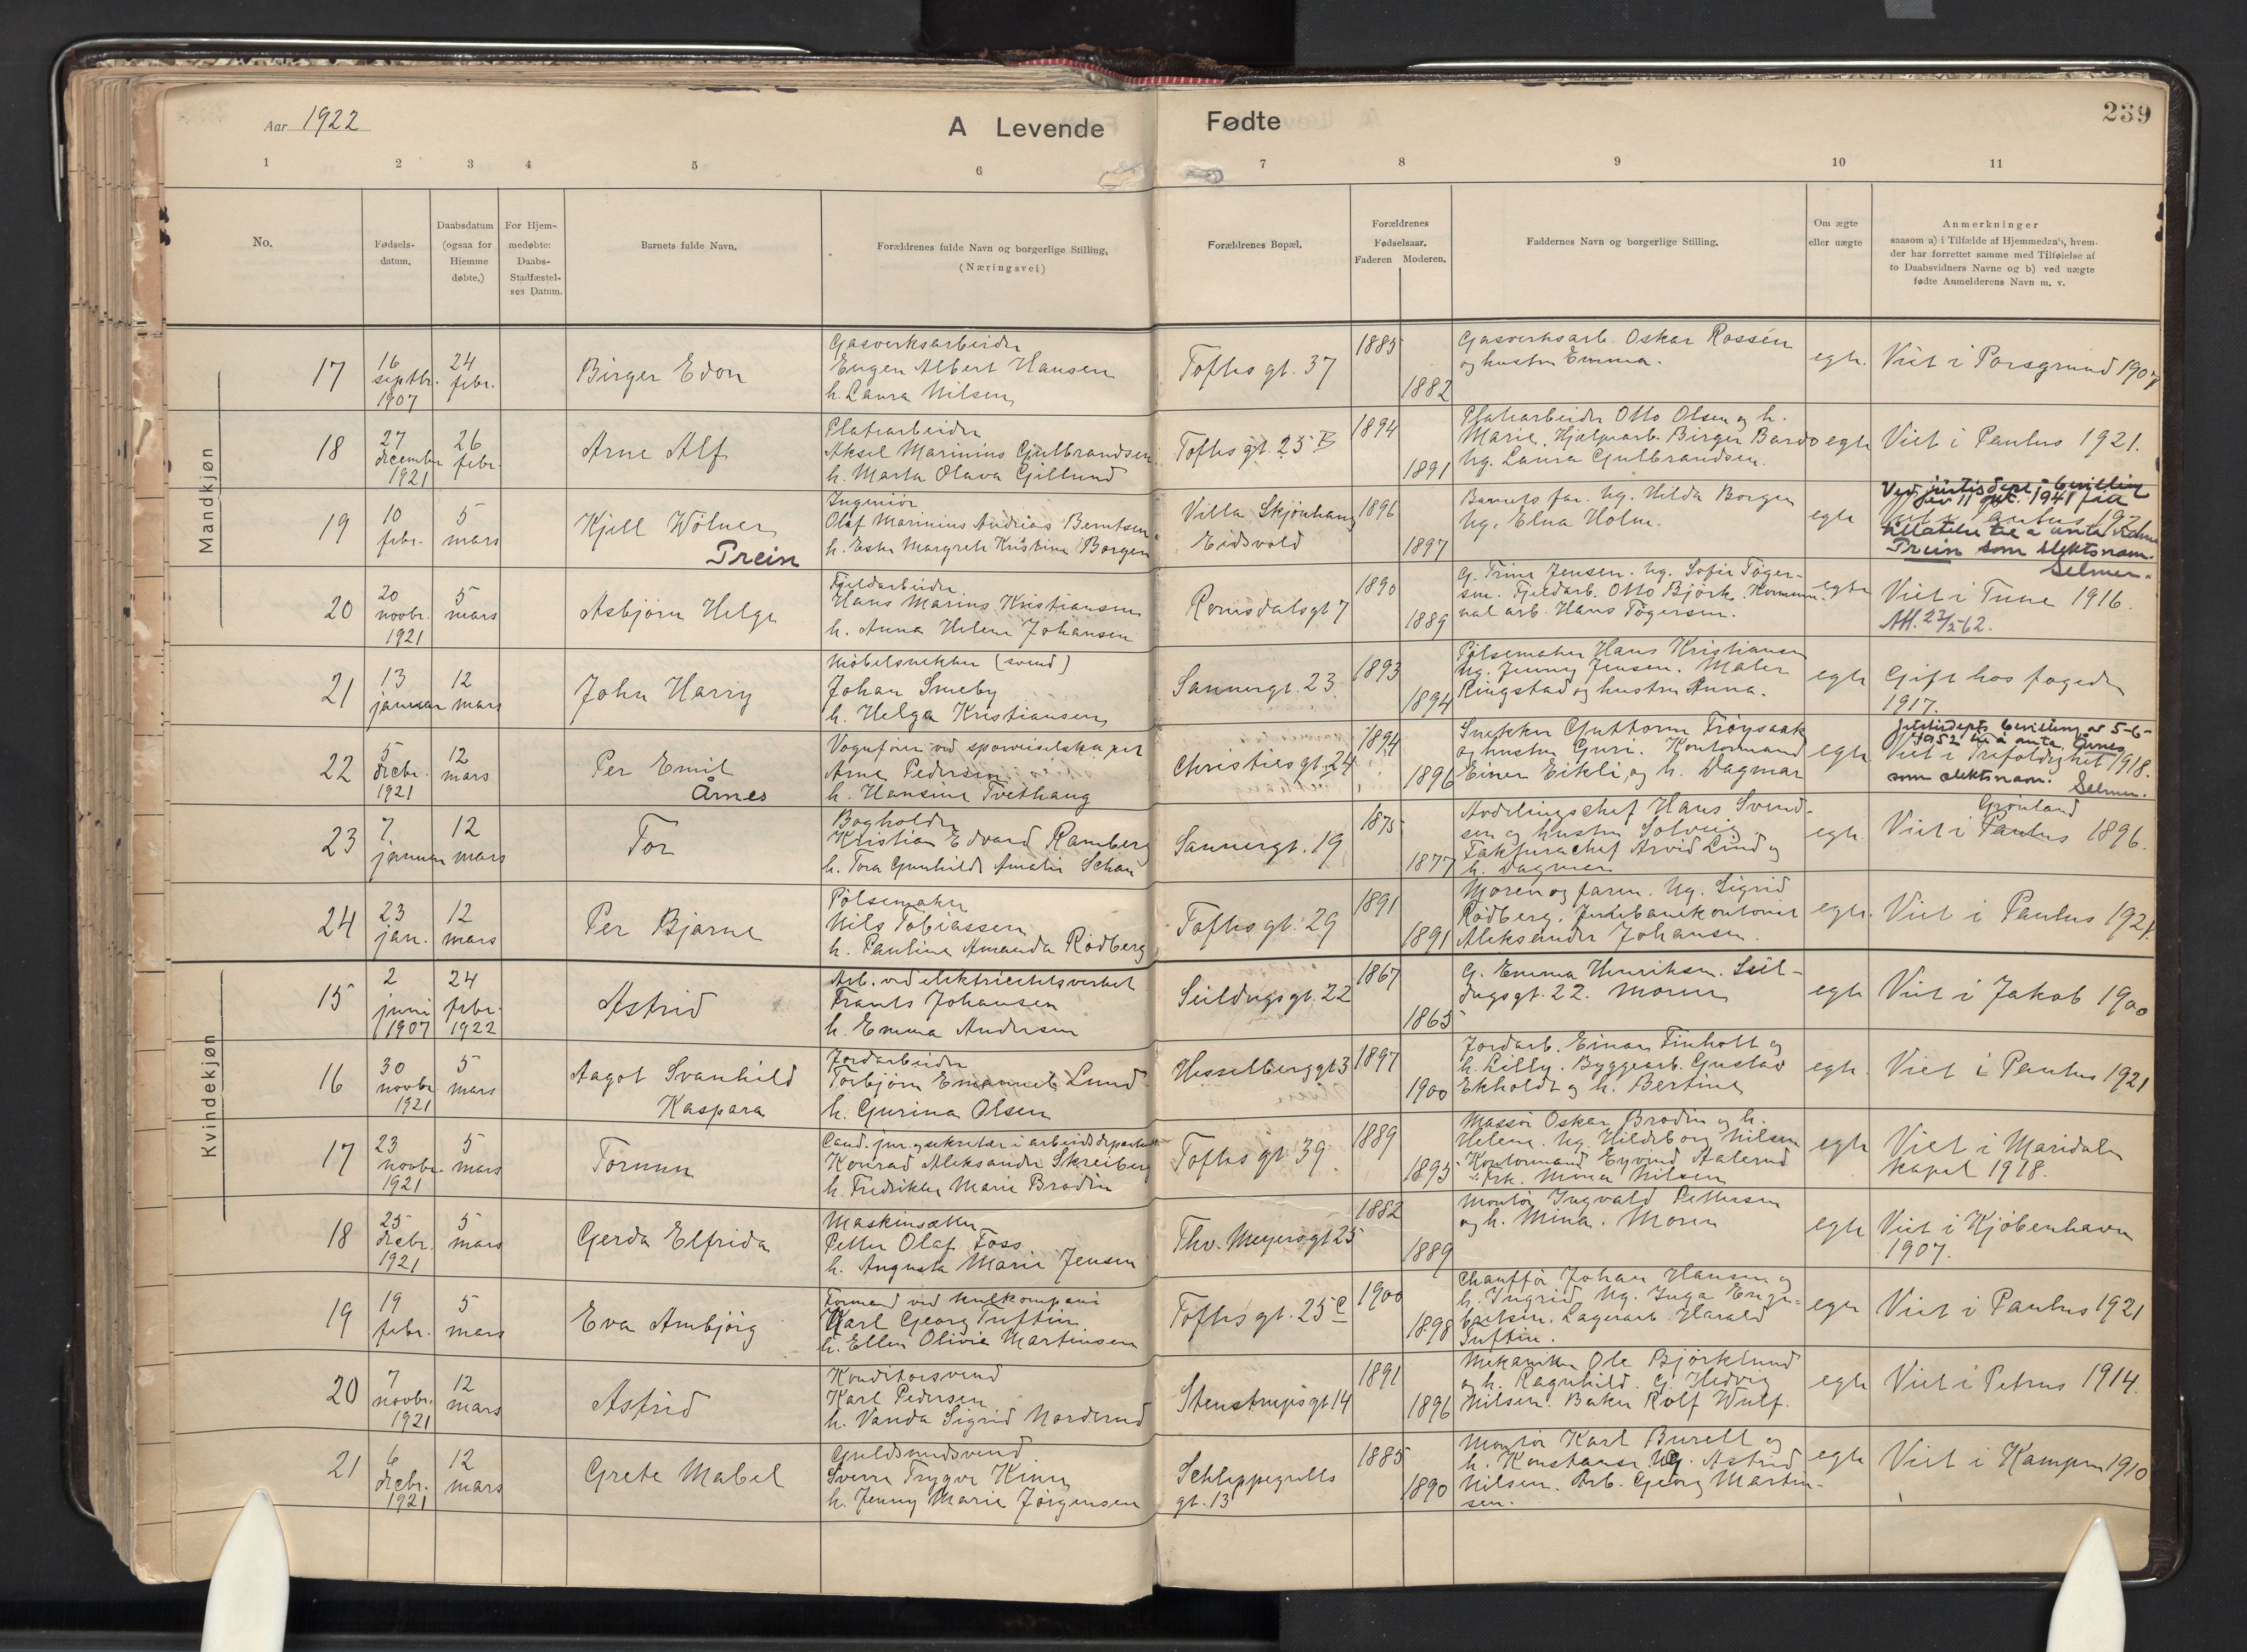 Aar 1922
A Levende Fødte
239
1 2 3 4 5 6 7 8 9 10 11
No.
Fødsels-
datum.
Daabsdatum
(ogsaa for
Hjemme
døbte.)
For Hjem-
medøbte:
Daabs-
Stadfæstel-
ses Datum.
Barnets fulde Navn.
Forældrenes fulde Navn og borgerlige Stilling.
(Næringsvei)
Forældrenes Bopæl.
Forældrenes
Fødselsaar.
Faderen Moderen.
Faddernes Navn og borgerlige Stilling.
Om ægte
eller uægte
Anmerkninger
saasom a) i Tilfælde af Hjemmedaab, hvem
der har forrettet samme med Tilføielse af
to Daabsvidners Navne og b) ved uægte
fødte Anmelderens Navn m. v.
Mandkjøn
17
16
septbr.
1907
24
febr.
Birger Edon
Gasverksarbeider
Eugen Albert Hansen
h. Laura Nilsen
Toftes gt. 37
1885
1882
Gasverksarb. Oskar Rossén
og hustru Emma.
egte.
Viet i Porsgrund 1907
18
27
december
1921
26
febr.
Arne Alf
Platearbeider
Aksel Marinius Gulbrandsen
h. Marta Olava Gillund
Toftes gt. 25 B
1894
1891
Platearbeider Otto Olsen og h.
Marie. Hjelpearb. Birger Bardo
Ug. Laura Gulbrandsen.
egte
Viet i Paulus 1921.
19
10
febr.
5
mars
Kjell Wölner
Prein
Ingeniör
Olaf Marinius Andreas Berntsen
h. Ester Margrete Kristine Borgen
Villa Skjönhaug
Eidsvold
1896
1897
Barnets far. Ug. Hilda Borgen
Ug. Elna Holm.
egte
Ved justisdept.s bevilling
av 11 okt. 1941 fia
tillatelse til å anta navnet
Prein som slektsnavn.
Selmer.
20
20
novbr.
1921
5
mars
Asbjörn Helge
Fjeldarbeider
Hans Marius Kristiansen
h. Anna Helene Johansen
Romsdalsgt 7
1890
1889
G. Trine Jensen. Ug. Sofie Töger-
sen. Fjeldarb. Otto Björk. Kommu-
nal arb. Hans Tögersen.
egte
Viet i Tune 1916.
Att. 22/5-62.
21
13
januar
12
mars
John Harry
Möbelsnekker (svend)
Johan Smeby
h. Helga Kristiansen
Sannergt. 23
1893
1894
Pölsemaker Hans Kristiansen
Ug. Jenny Jensen. Maler
Ringstad og hustru Anna.
egte
Gift hos fogden
1917.
22
5
decbr.
1921
12
mars
Per Emil
Årnes
Vognförer ved sporveiselskapet
Arne Pedersen
h. Hansine Tvethaug
Christies gt. 24
1894
1896
Snekker Guttorm Tröysaak
og hustru Guri. Kontormand
Einer Eikli og h. Dagmar
egte
Justisdepts bevilling av 5-6-
1952 til å anta Årnes
Viet i Trefoldighet 1918.
som slektsnavn. Selmer.
23
7
januar
12
mars
Tor
Bogholder
Kristian Edvard Ramberg
h. Tora Gunhilde Amalie Schau
Sannergt. 19
1875
1877
Avdelingschef Hans Svend-
sen og hustru Solveig
Fakturachef Arvid Lind og
h. Dagmar.
egte.
Grønland
Viet i Paulus 1896.
24
23
jan.
12
mars
Per Bjarne
Pölsemaker
Nils Tobiassen
h. Pauline Amanda Rödberg
Toftes gt. 29
1891
1891
Moren og faren. Ug. Sigrid
Rödberg. Jernbanekontorist
Aleksander Johansen.
egte.
Viet i Paulus 1921.
Kvindekjøn
15
2
juni
1907
24
febr.
1922
Astrid
Arb. ved elektricitetsverket
Frants Johansen
h. Emma Andersen
Seildugsgt. 22
1867
1865
G. Emma Henriksen. Seil-
dugsgt. 22. Moren
egte
Viet i Jakob 1900
16
30
novbr.
1921
5
mars
Aagot Svanhild
Kaspara
Jordarbeider
Torbjörn Emanuel Lund
h. Gurina Olsen
Hesselberggt 3
1897
1900
Jordarb. Einar Finholt og
h. Lilly. Byggearb. Gustav
Ekholdt og h. Bertine
egte.
Viet i Paulus 1921
17
23
novbr.
1921
5
mars
Torunn
Cand. jur. og sekretær i arbeidsdepartem
Konrad Aleksander Skreiberg
h. Fredrikke Marie Brodin
Toftes gt. 39.
1889
1895
Massör Oskar Brodin og h.
Helene. Ug. Hildeborg Nilsen
Kontormand Eyvind Aalerud
Frk. Mina Nilsen
egte
Viet i Maridalen
kapel 1918.
18
25
decbr.
1921
5
mars
Gerda Elfrida
Maskinsætter
Petter Olaf Foss
h. Augusta Marie Jensen
Thv. Meyersgt 25
1882
1889
Montör Ingvald Pettersen
og h. Mina. Moren
egte
Viet i Kjöbenhavn
1907.
19
19
febr.
5
mars
Eva Anbjörg
Formand ved kulkompani
Karl Georg Tuftin
h. Ellen Olivie Martinsen
Toftes gt. 25 C
1900
1898
Chaufför Johan Hansen og
h. Ingrid. Ug. Inga Enge-
bretsen. Lagerarb. Harald
Tuftin.
egte
Viet i Paulus 1921
20
7
novbr.
1921
12
mars
Astrid
Konditorsvend
Karl Pedersen
h. Vanda Sigrid Norderud
Stenstrupsgt 14
1891
1896
Mekaniker Ole Björklund
og h. Ragnhild. G. Hedvig
Nilsen. Baker Rolf Wulf.
egte
Viet i Petrus 1914.
21
6
decbr.
1921
12
mars
Grete Mabel
Guldsmedsvend
Sverre Trygve Kinn
h. Jenny Marie Jörgensen
Schleppegrells
gt. 13
1885
1890
Montör Karl Burell og
h. Konstanse. Ug. Astrid
Nilsen. Arb. Georg Martin-
sen.
egte
Viet i Kampen 1910